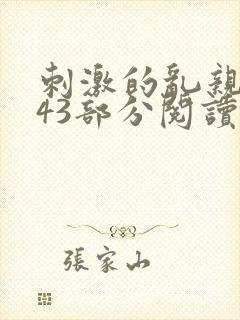 刺激的亂親
43部分閱讀
張家山